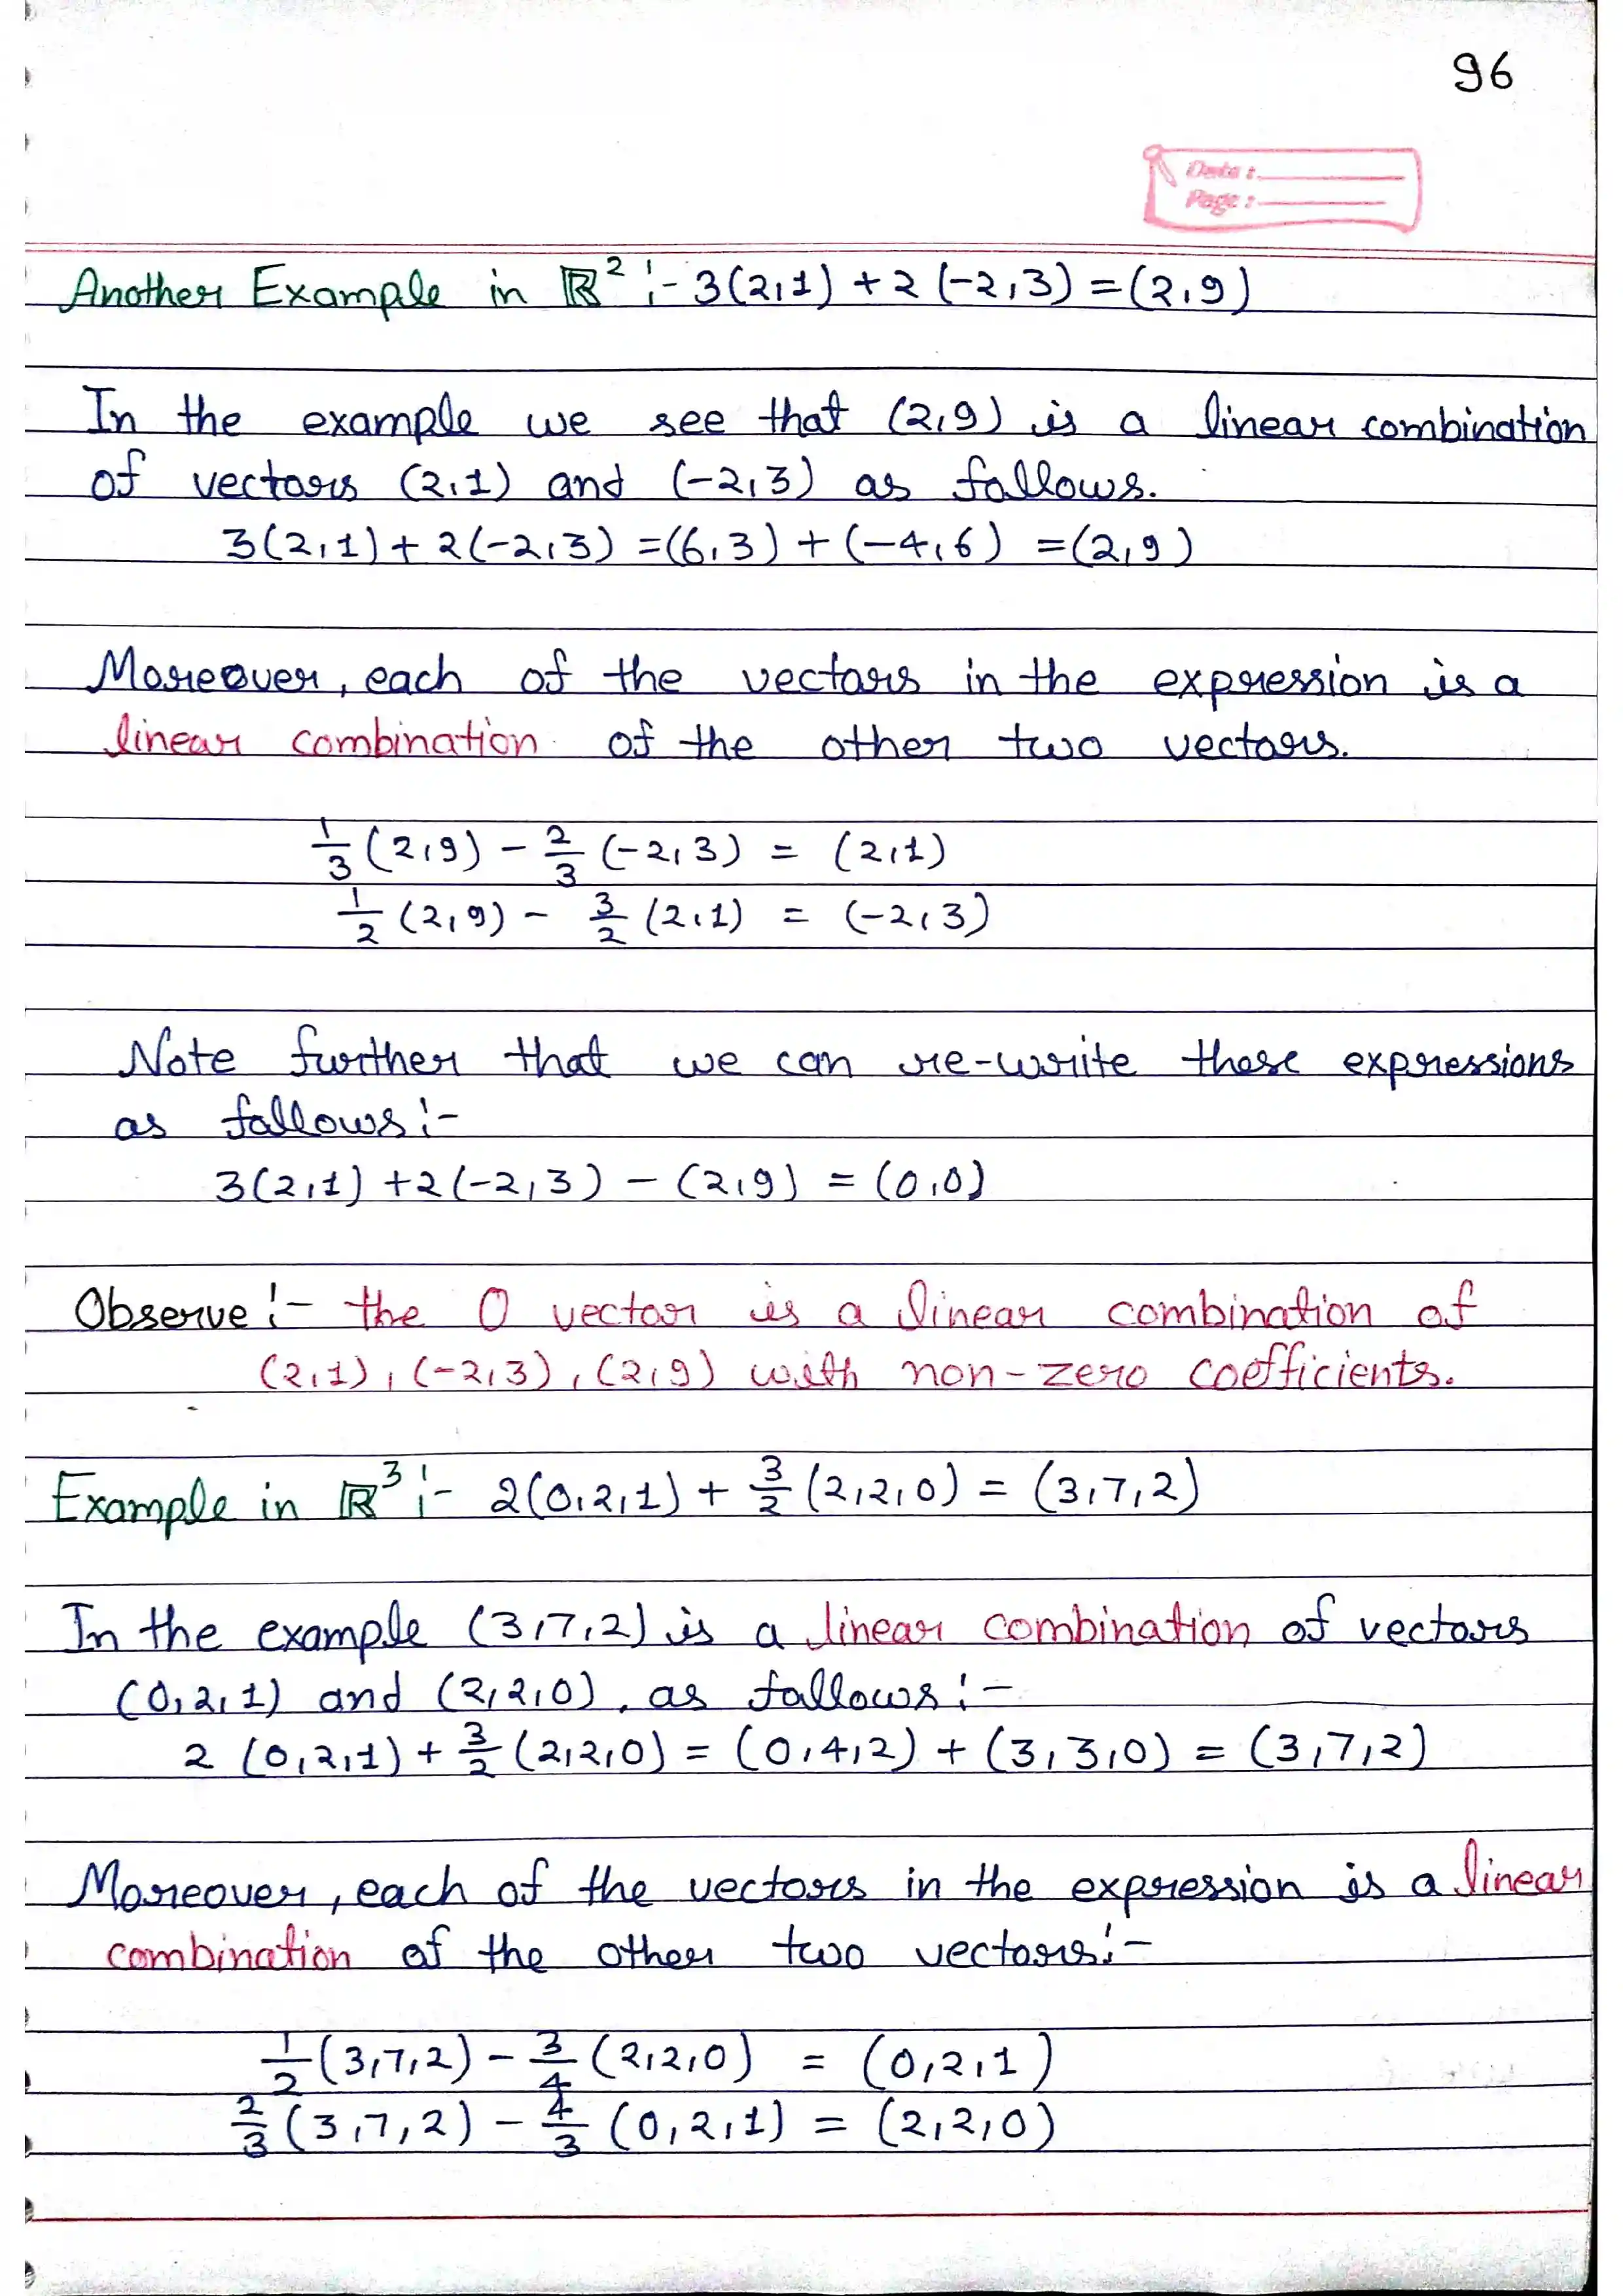 96
Date :
Page :
Another Example in ℝ² :- 3(2,1) + 2(-2,3) = (2,9)
In the example we see that (2,9) is a linear combination
of vectors (2,1) and (-2,3) as follows.
3(2,1) + 2(-2,3) = (6,3) + (-4,6) = (2,9)
Moreover, each of the vectors in the expression is a
linear combination of the other two vectors.
1/3 (2,9) - 2/3 (-2,3) = (2,1)
1/2 (2,9) - 3/2 (2,1) = (-2,3)
Note further that we can re-write these expressions
as follows :-
3(2,1) + 2(-2,3) - (2,9) = (0,0)
Observe :- the 0 vector is a linear combination of
(2,1), (-2,3), (2,9) with non-zero coefficients.
Example in ℝ³ :- 2(0,2,1) + 3/2 (2,2,0) = (3,7,2)
In the example (3,7,2) is a linear combination of vectors
(0,2,1) and (2,2,0), as follows :-
2 (0,2,1) + 3/2 (2,2,0) = (0,4,2) + (3,3,0) = (3,7,2)
Moreover, each of the vectors in the expression is a linear
combination of the other two vectors :-
1/2 (3,7,2) - 3/4 (2,2,0) = (0,2,1)
2/3 (3,7,2) - 4/3 (0,2,1) = (2,2,0)